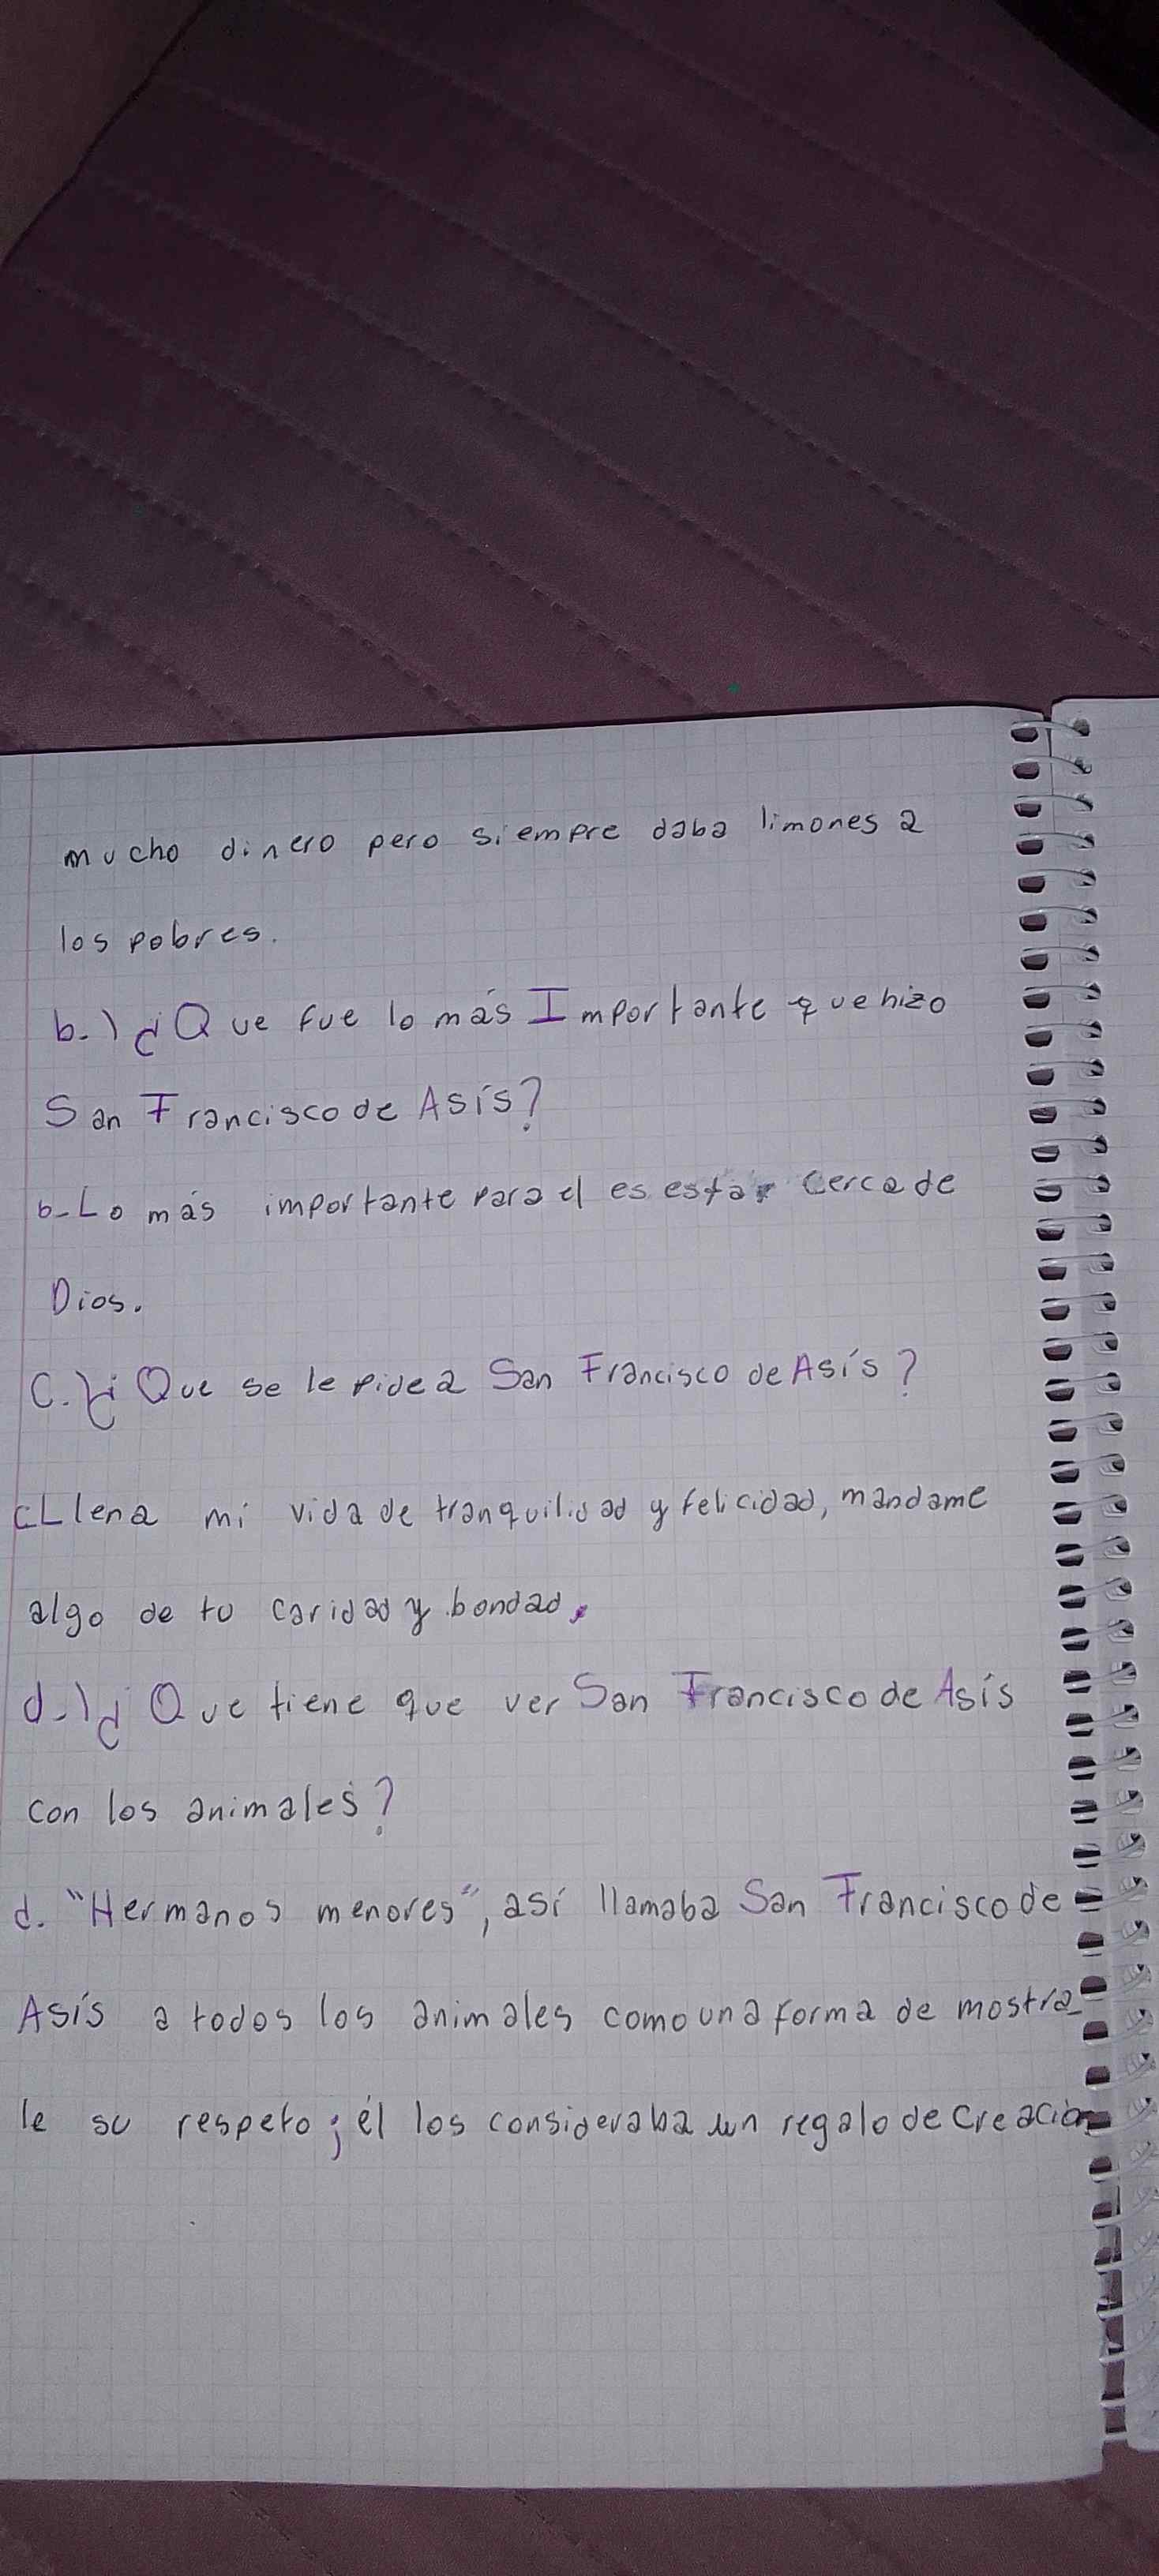 mucho dinero pero siempre daba limones a
los pobres.
b.) ¿Que fue lo más Importante que hizo
San Francisco de Asís?
b-Lo más importante para el es estar cerca de
Dios.
C.) ¿Que se le pide a San Francisco de Asís?
c Llena mi vida de tranquilidad y felicidad, mandame
algo de tu caridad y bondad.
d.) ¿Que tiene que ver San Francisco de Asís
con los animales?
d. "Hermanos menores", así llamaba San Francisco de
Asís a todos los animales como una forma de mostra
le su respeto; él los consideraba un regalo de creación